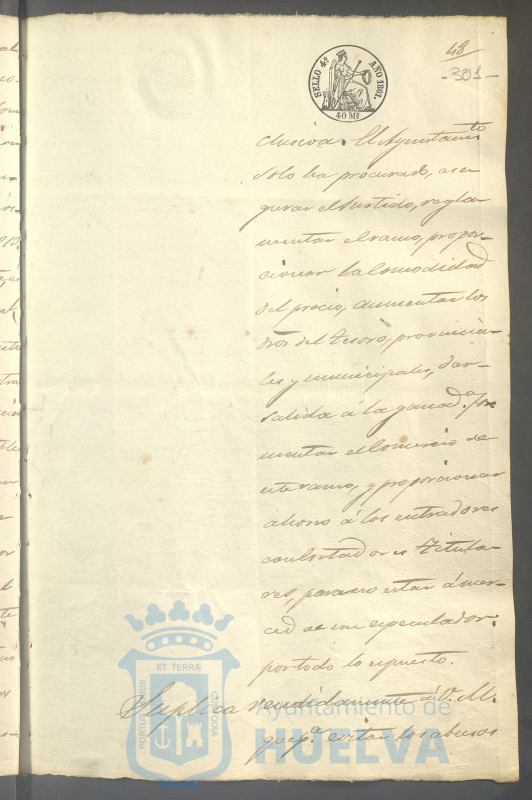 48
-301-
SELLO 4º AÑO 1861.
40 Mˢ
clusiva. El Ayuntamᵗᵒ
solo ha procurado, ase-
gurar el surtido, regla-
mentar el ramo, propor-
cionar la Comodidad
del precio, aumentar los
dros del Tesoro, provincia-
les y municipales, dar
salida á la ganadᵃ fo-
mentar el Comercio de
este ramo, y proporcionar
ahorro á los entradores
con cortadores titula-
res, para no estar á mer-
ced de un especulador.
por todo lo espuesto.
Suplica rendidamente á V. M.
que pᵃ evitar los abusos
PORTUS MARIS
ET TERRÆ
CUSTODIA
Ayuntamiento de
HUELVA